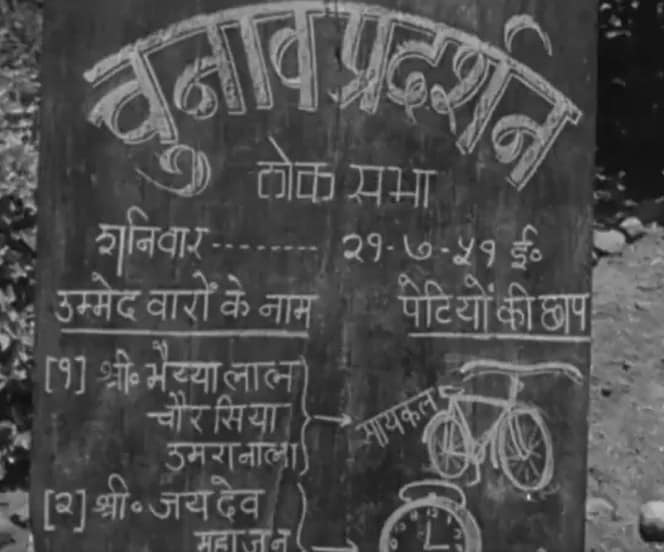 चुनाव प्रदर्शन
लोक सभा
शनिवार -------- २१-७-५१ ई०
उम्मेदवारों के नाम पेटियों की छाप
[१] श्री० भैय्यालाल
चौरसिया सायकल
उमरानाला
[२] श्री० जयदेव
महाजन